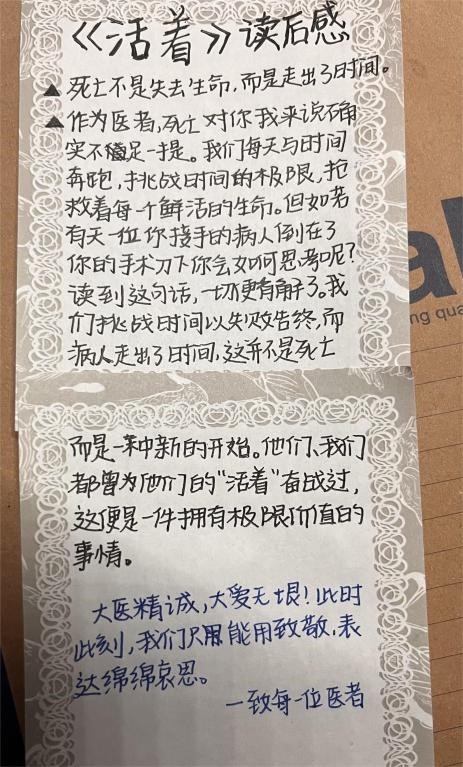 《活着》读后感
▲ 死亡不是失去生命，而是走出了时间。
▲ 作为医者，死亡对你我来说确
实不足一提。我们每天与时间
奔跑，挑战时间的极限，抢
救着每一个鲜活的生命。但如若
有天一位你接手的病人倒在了
你的手术刀下你会如何思考呢？
读到这句话，一切便有解了。我
们挑战时间以失败告终，而
病人走出了时间，这并不是死亡
而是一种新的开始。他们、我们
都曾为他们的“活着”奋战过，
这便是一件拥有极限价值的
事情。
大医精诚，大爱无垠！此时
此刻，我们只能用致敬，表
达绵绵哀思。
一致每一位医者
al
ng qua